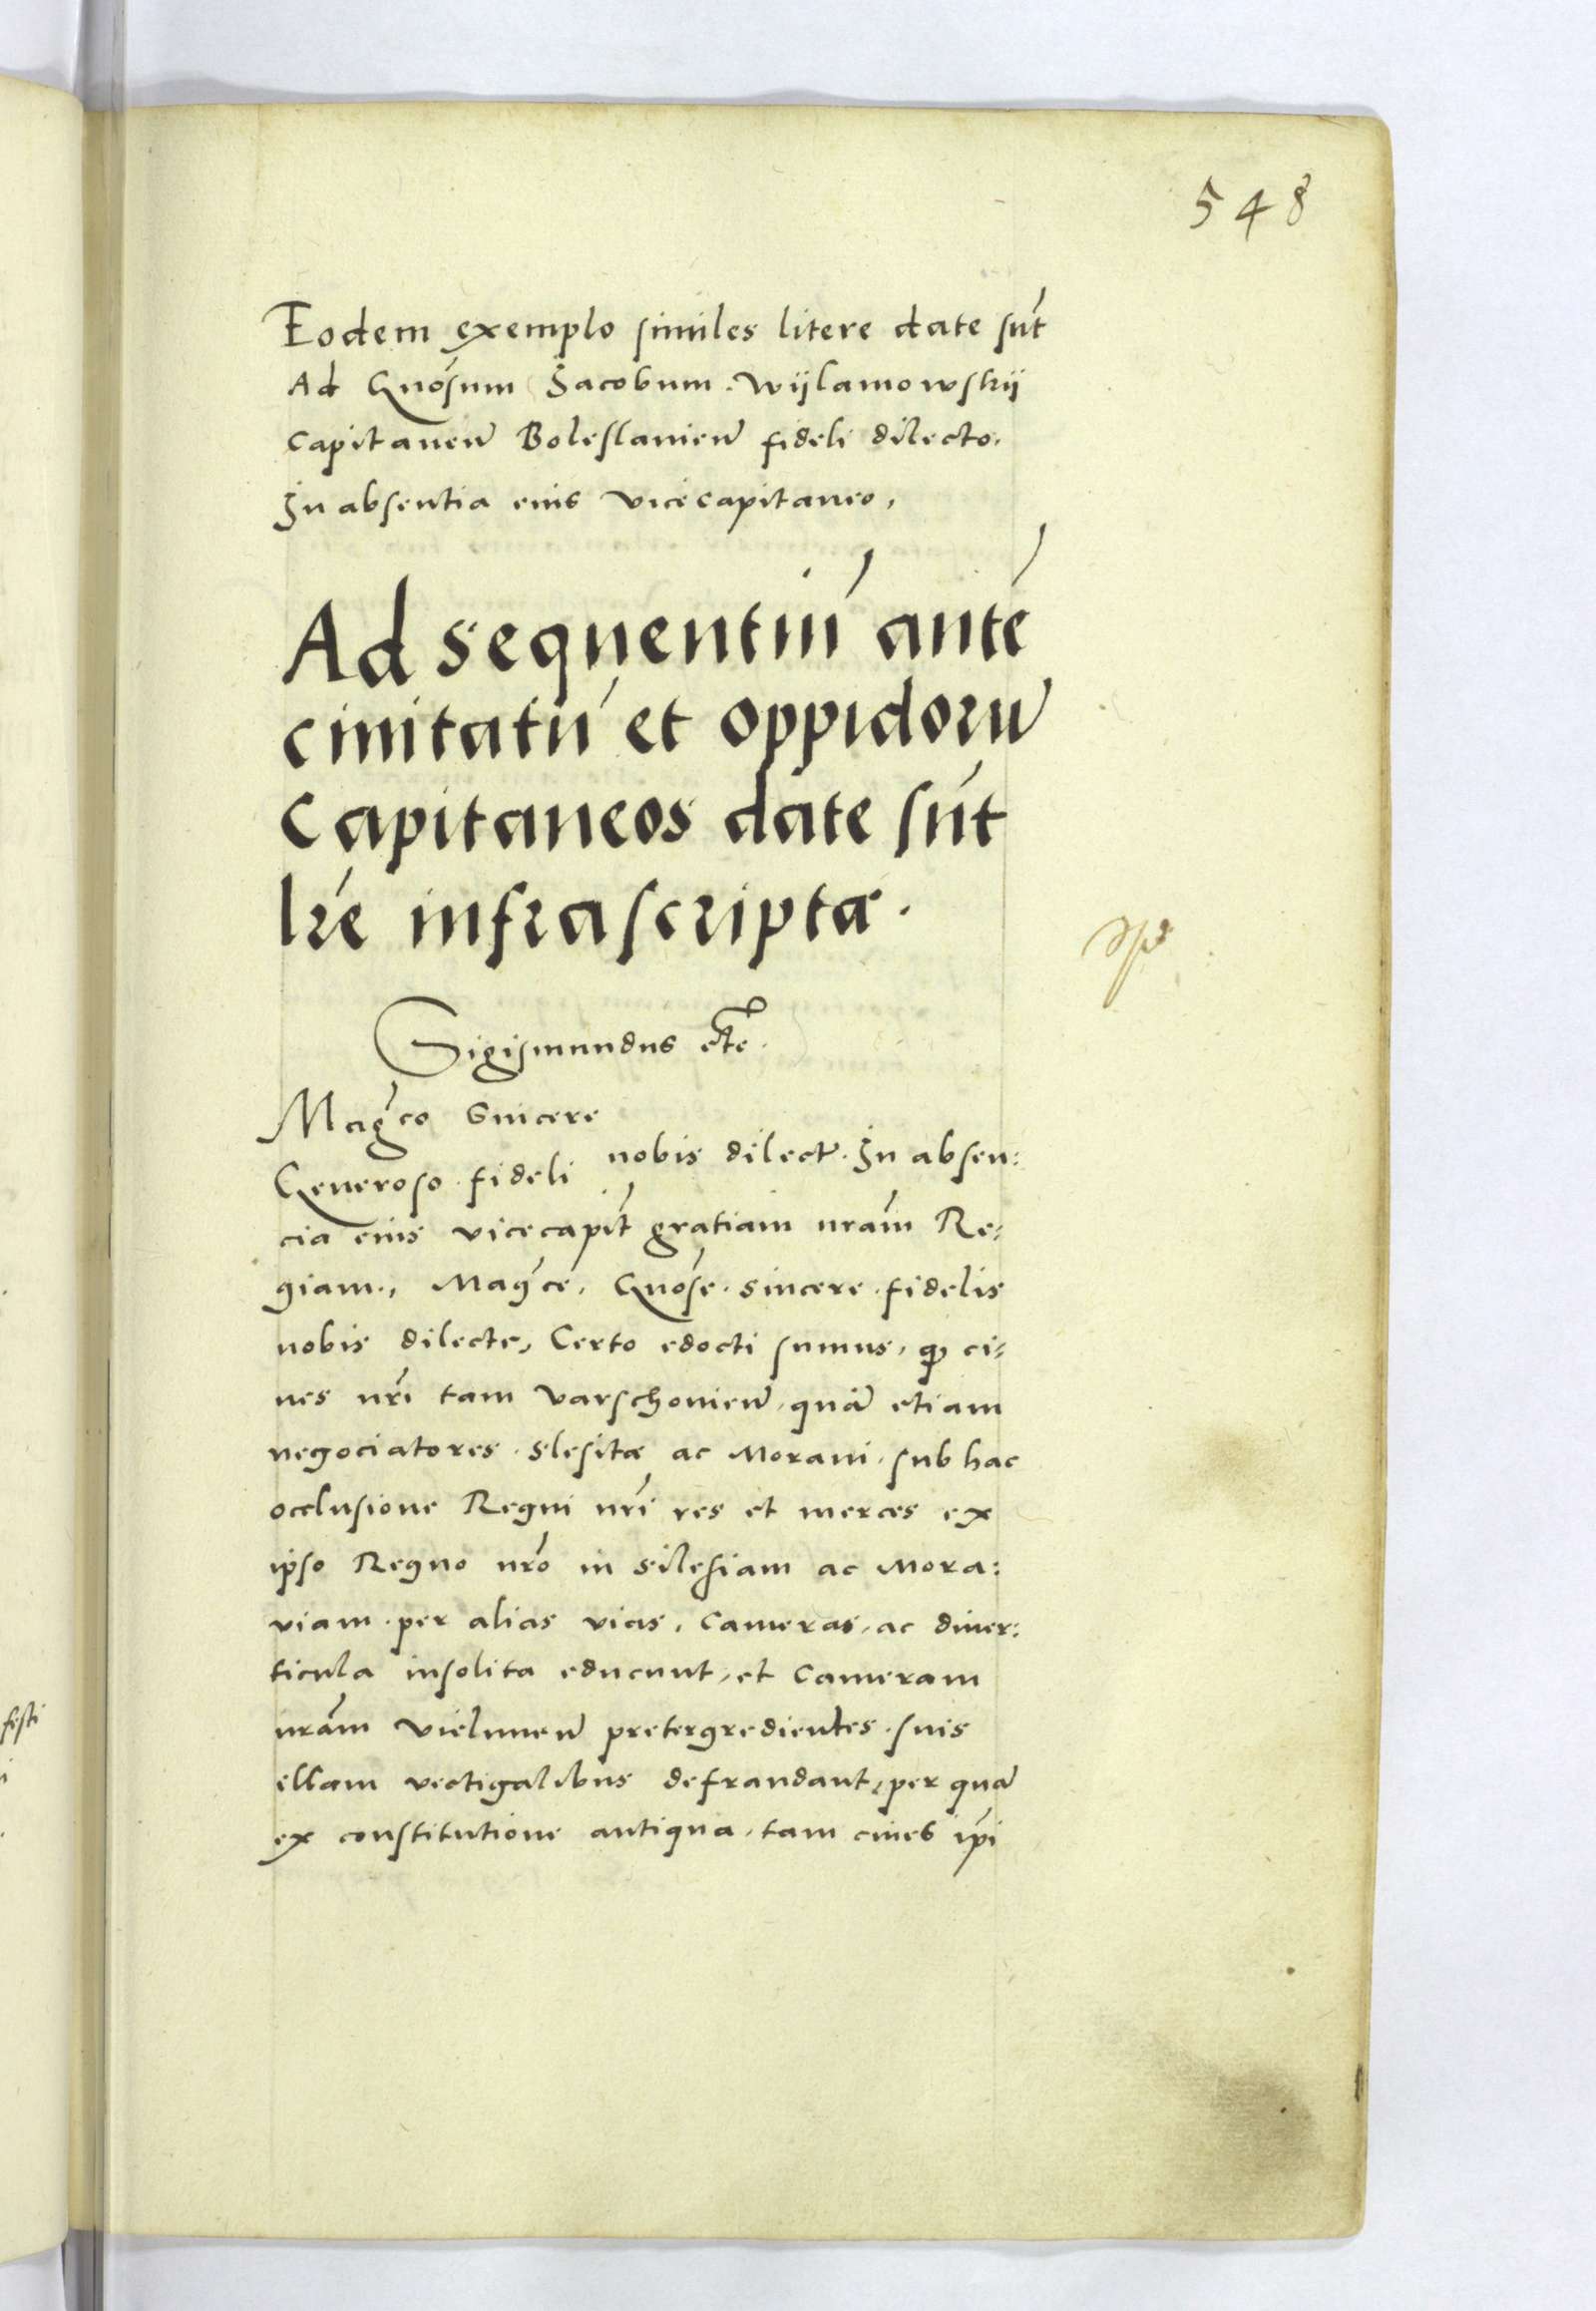 548
Eodem exemplo similes litere date sūt
Ad Gnósum Jacobum Wijlamowskij
Capitaneū Boleslavieñ fideli dilecto.
In absentia eius vicecapitaneo,
Ad sequentiū autē
civitatū et oppidorū
Capitaneos date sūt
lr̄e infrascriptæ.
Sigismundus etc̃.
Magc̄o Sincere
Generoso fideli nobis dilect̃. In absen:
cia eius vicecapit̄ gratiam nr̄am Re=
giam., Magc̄e, Gnóse. sincere. fidelis
nobis dilecte, Certo edocti sumus, qđ ci=
ves nr̄i tam Varschovieñ, quā etiam
negociatores. Slesitæ ac Moravi, sub hac
occlusione Regni nr̄i res et merces ex
ipso Regno nr̄o in Silesiam ac Mora:
viam. per alias vias, Cameras, ac diver:
ticula insolita educunt, et Cameram
nr̄am Vieluneñ pretergredientes. suis
illam vectigalibus defraudant, per quā
ex constitutione antiqua, tam cives ip̄i